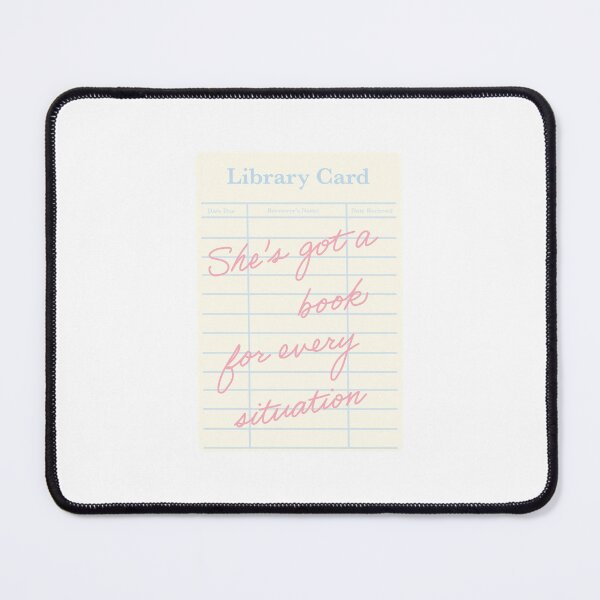 Library Card
Date Due Borrower's Name Date Returned
She's got a
book
for every
situation